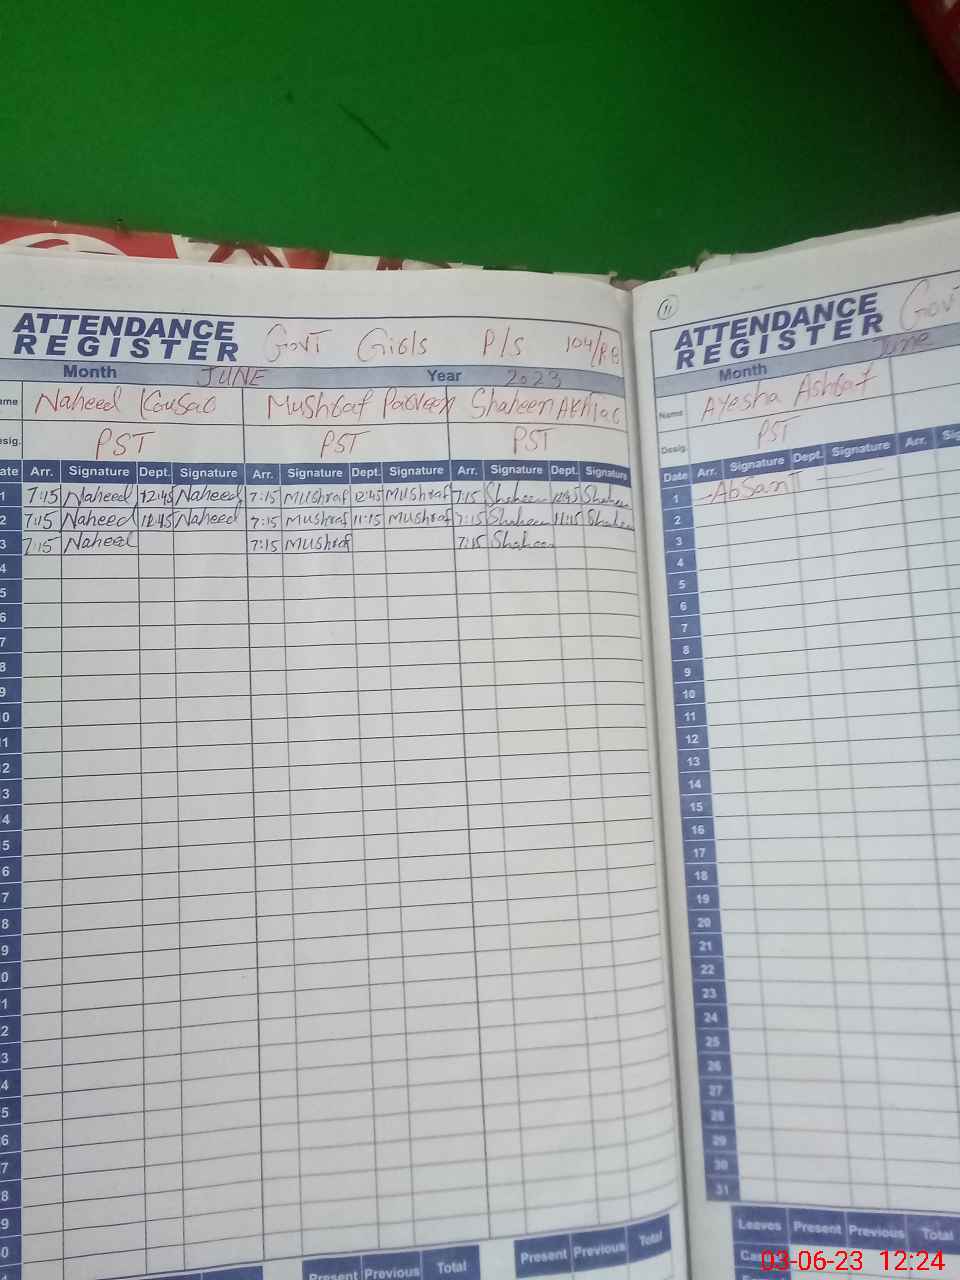 ATTENDANCE REGISTER GovT Girls P/S 104/RB
Month JUNE Year 2023
Name Naheed Kousar Mushtaf Parveen Shaheen Akhtar
Desig. PST PST PST
Date Arr. Signature Dept. Signature Arr. Signature Dept. Signature Arr. Signature Dept. Signature
1 7:15 Naheed 12:45 Naheed 7:15 Mushraf 12:45 Mushraf 7:15 Shaheen 12:45 Shaheen
2 7:15 Naheed 12:45 Naheed 7:15 Mushraf 11:15 Mushraf 7:15 Shaheen 11:15 Shaheen
3 7:15 Naheed 7:15 Mushraf 7:15 Shaheen
4
5
6
7
8
9
0
1
2
3
4
5
6
7
8
9
0
1
2
3
4
5
6
7
8
9
0
Present Previous Total Present Previous Total
11
ATTENDANCE REGISTER GovT
Month June
Name Ayesha Ashraf
Desig. PST
Date Arr. Signature Dept. Signature Arr.
1 AbSanT
2
3
4
5
6
7
8
9
10
11
12
13
14
15
16
17
18
19
20
21
22
23
24
25
26
27
28
29
30
31
Leaves Present Previous Total
03-06-23 12:24